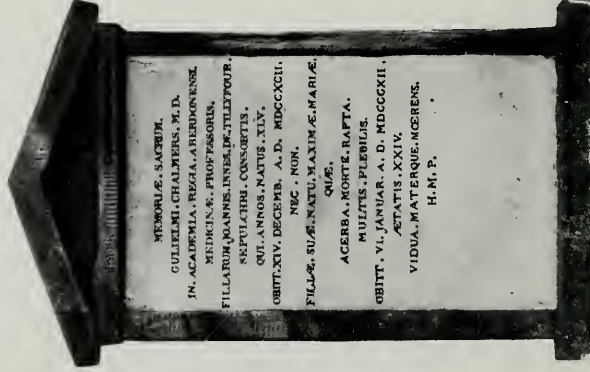 MEMORIÆ. SACRUM.
GULIELMI. CHALMERS. M. D.
IN. ACADEMIA. REGIA. ABERDONENSI.
MEDICINÆ. PROFESSORIS,
FILIARUM, JOANNIS. INNES. DE. TILLYFOUR.
SEPULCHRI. CONSORTIS.
QUI. ANNOS. NATUS. XLV.
OBIIT. XIV. DECEMB. A. D. MDCCXCII.
NEC. NON.
FILIÆ. SUÆ. NATU. MAXIMÆ. MARIÆ.
QUÆ.
ACERBA. MORTE. RAPTA.
MULTIS. FLEBILIS.
OBIIT. VI. JANUAR. A. D. MDCCCXII.
ÆTATIS. XXIV.
VIDUA. MATERQUE. MŒRENS.
H. M. P.